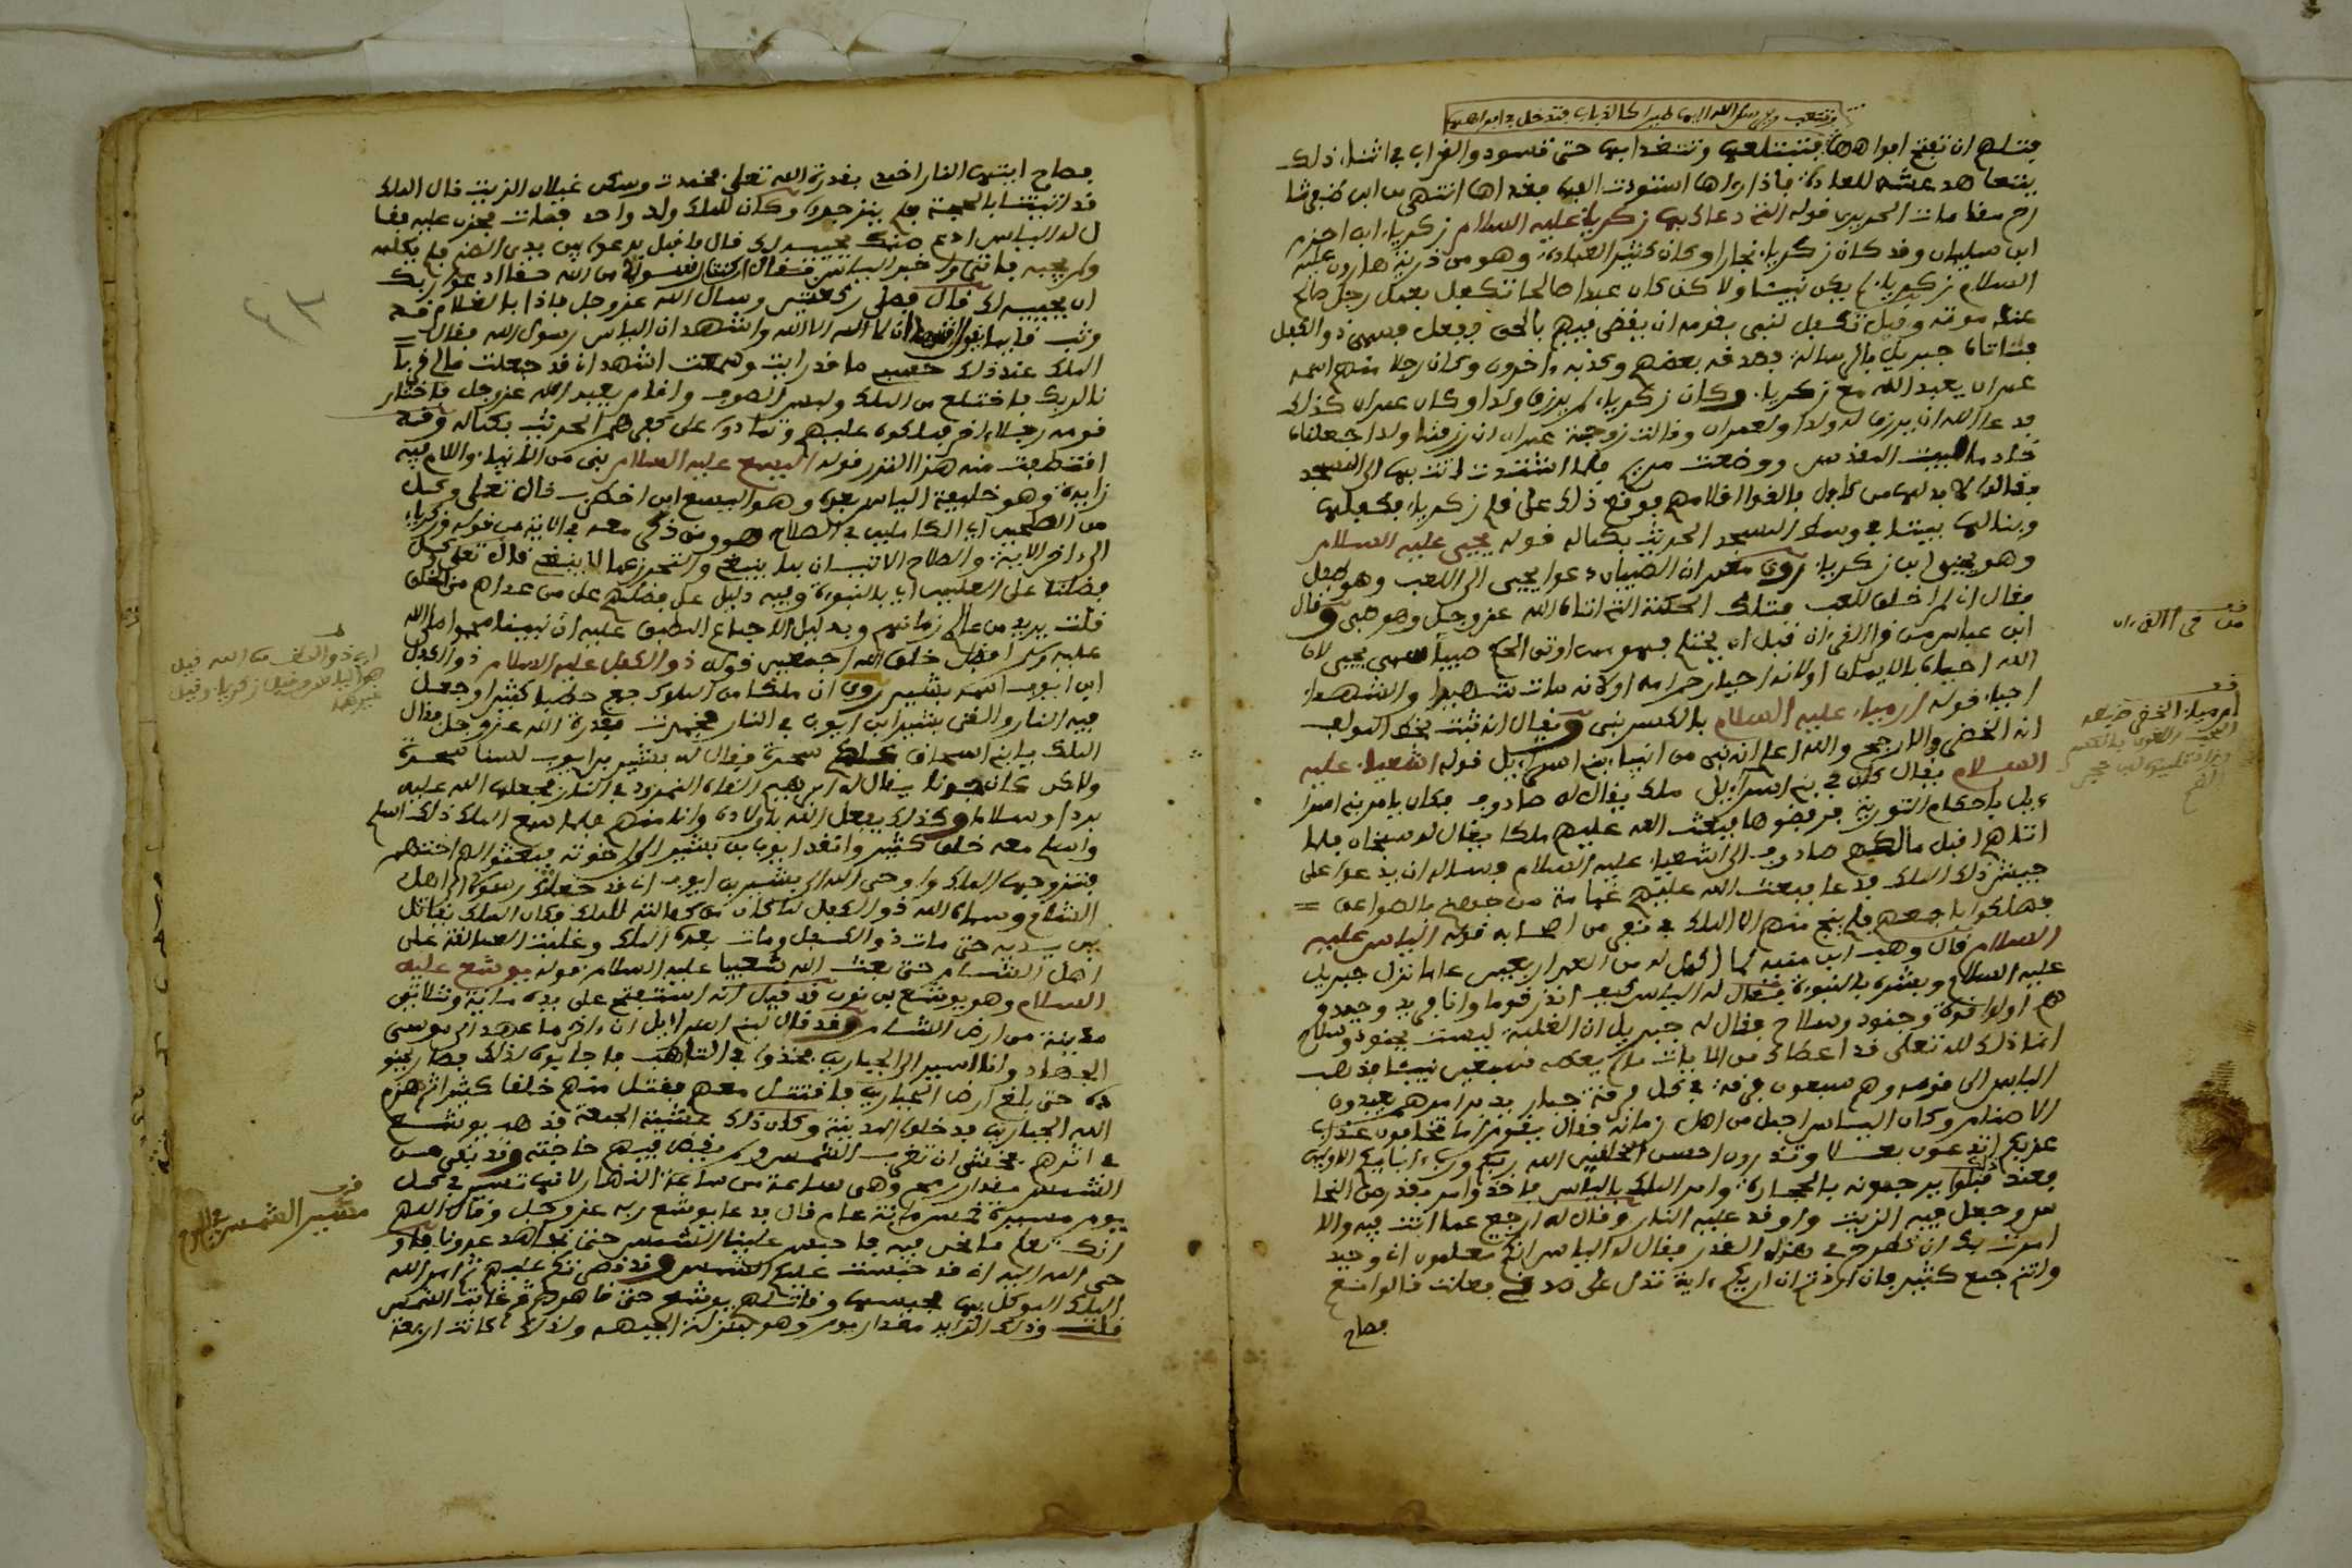 وتتعب ويرسل الله اليها طيرا كالذباب فتدخل في افواهها
فتلهم ان تفتح افواهها فتبتلعها وتتغدا بها حتى تسود والغراب في اثناء ذلك
يتعاهد عشه للعادة فاذا راها اسودت القمها فغداها انتهى من
رح مقامات الحريري قوله التي دعا بها زكرياء عليه السلام زكرياء ابن احزم
ابن سليمان وقد كان زكرياء نجارا وكان كثير العبادة وهو من ذرية هارون عليه
السلام زكرياء لم يكن نبيئا ولاكن كان عبدا صالحا تكفل بعمل رجل صالح
عند موته وقيل تكفل لنبي بقومه ان يقضي بينهم بالحق ففعل فسمي ذو الكفل
فاتاه جبريل بالرسالة فصدقه بعضهم وكذبه ءاخرون وكان رجلا منهم اسمه
عمران يعبد الله مع زكرياء وكان زكرياء لم يرزق ولدا وكان عمران كذلك
فدعا الله ان يرزق له ولدا ولعمران وقالت زوجة عمران ان رزقنا ولدا جعلناه
خادما لبيت المقدس ووضعت مريم فلما اشتدت اتت بها الى المسجد
فقالوا لا بد لها من كافل فالقوا اقلامهم فوقع ذلك على قلم زكرياء فكفلها
وبنا لها بيتا في وسط المسجد الحديث بكماله قوله يحيى عليه السلام
وهو يحيى ابن زكرياء روى معمر ان الصبيان دعوا يحيى الى اللعب وهو طفل
فقال اني لم اخلق للعب فتلك الحكمة التي اتاه الله عزوجل وهو صبي وقال
ابن عباس من قرا القرءان قبل ان يحتلم فهو ممن اوتي الحكم صبيا سمي يحيى لان
الله احياه بالايمان اولانه احيا رحم امه اولانه مات شهيدا والشهداء
احياء قوله ارمياء عليه السلام بالكسر نبي ويقال انه نبت بخط المولف
انه الخضر والارجح والله اعلم انه نبي من انبياء بني اسراءيل قوله اشعياء عليه
السلام يقال كان في بني اسراءيل ملك يقال له صادوق فكان يامر بني اسرا
ءيل باحكام التورية فرفضوها فبعث الله عليهم ملكا يقال له سنجان فلما
اتاهم اقبل مالكهم صادوق الى اشعياء عليه السلام وساله ان يدعوا على
جيش ذلك الملك فدعا فبعث الله عليهم غمامة من جهنم بالصواعق
فهلكوا باجمعهم فلم ينج منهم الا الملك في نفر من اصحابه قوله الياس عليه
السلام قال وهب ابن منبه لما اكمل له من العمر اربعين عاما نزل جبريل
عليه السلام وبشره بالنبوة فقال له الياس كيف انذر قوما وانا فريد وحيد و
هم اولوا قوة وجنود وسلاح فقال له جبريل ان الغلبة ليست بجنود وسلاح
انما ذلك لله تعلى قد اعطاك من الايات ما لم يعطه سبعين نبيئا فذهب
الياس الى قومه وهم سبعون فرقة في كل فرقة جبار يدبر امرهم يعبدون
الاصنام وكان الياس اجمل من اهل زمانه فقال يقوم اما تخافون عذاب
عزيز اتدعون بعلا وتذرون احسن الخالقين الله ربكم ورب ءابايكم الاولين
فعند ذلك قبلوا يرجمونه بالحجارة وامر الملك بالياس فاخذ وامر بقدر من النحا
س وجعل فيه الزيت واوقد عليه النار وقال له ارجع عما انت فيه والا
امرت بك ان تطرح في هذه القدر فقال له الياس انكم تعلمون اني وحيد
وانتم جمع كثير فان اردتم ان اريكم ءاية تدل على صدقي فعلت قالوا نعم
فصاح
قف من قرا القرءان
قف

فصاح ايتها النار اخمدي بقدرة الله تعلى فخمدت وسكن غليان الزيت قال الملك
قد اتيتنا بالحجة فلم ينزجروا وكان للملك ولد واحد فمات فحزن عليه فقا
ل له الياس ادع صنمك يحييه لك قال فاقبل يدعوا بين يدي الصنم فلم يكلمه
ولم يجبه فاتى واخبر الياس فقال ان كنت رسولا من الله حقا ادعوا ربك
ان يحييه لك قال فصلى ركعتين وسال الله عزوجل فاذا بالغلام قد
وثب قايما يقول اشهد ان لا اله الا الله واشهد ان الياس رسول الله فقال
الملك عند ذلك حسبي ما قد رايت وسمعت اشهد اني قد جعلت مالي قربا
نا لربك فاختلع من الملك ولبس الصوف واقام يعبد الله عزوجل فاختار
قومه رجلا ءاخر فملكوه عليهم وتمادوا على كفرهم الحديث بكماله وقد
اقتطعت منه هذا القدر قوله اليسع عليه السلام نبي من الانبياء واللام فيه
زايدة وهو خليفة الياس بعده وهو اليسع ابن اخطوب قال تعلى وكل
من الصلحين اي الكاملين في الصلاح هو ومن ذكر معه في الاية من قوله وزكرياء
الى ءاخر الاية والصلاح الاتيان بما ينبغي والتحرز عما لا ينبغي قال تعلى وكلا
فضلنا على العلمين اي بالنبوة وفيه دليل على فضلهم على من عداهم من الخلق
قلت يريد من عالم زمانهم وبدليل الاجماع المطبق عليه ان نبينا محمدا صلى الله
عليه وسلم افضل خلق الله اجمعين قوله ذو الكفل عليه السلام ذو الكفل
ابن ايوب اسمه بشير روى ان ملكا من الملوك جمع حطبا كثيرا وجعل
فيه النار والقى بشير ابن ايوب في النار فخمدت بقدرة الله عزوجل فقال
الملك يا بني اسحاق سحرة فقال له بشير بن ايوب لسنا سحرة
ولاكن كان جدنا يقال له ابرهيم القاه النمرود في النار فجعلها الله عليه
بردا وسلاما وكذلك يفعل الله باولاده وانا منهم فلما سمع الملك ذلك اسلم
واسلم معه خلق كثير وانقذ ايوب بن بشير الى اخوته فبعثوا اليه اختهم
فتزوجها الملك واوحى الله الى بشير بن ايوب اني قد جعلتك رسولا الى اهل
الشام وسماه الله ذو الكفل لما كان من كفالته للملك وكان الملك يقاتل
بين يديه حتى مات ذو الكفل ومات بعده الملك وغلبت العمالقة على
اهل الشام حتى بعث الله شعيبا عليه السلام قوله يوشع عليه
السلام وهو يوشع بن نون قد قيل انه استفتح على يده مائة وثلاثين
مدينة من ارض الشام وقد قال لبني اسراءيل ان ءاخر ما عهد الي موسى
الجهاد وانا اسير الى الجبارين فخذوا في التاهب فاجابوه لذلك فصار بجنو
ده حتى بلغ ارض الجبارين فاقتتل معهم فقتل منهم خلقا كثيرا ثم هزم
الله الجبارين فدخلوا المدينة وكان ذلك عشية الجمعة قد هد يوشع
في اثرهم فخشي ان تغرب الشمس ولم يقض فيهم حاجته وقد بقي من
الشمس مقدار رمح وهي ساعة من ساعة النهار لانها تسير في كل
يوم مسيرة خمسماية عام قال فدعا يوشع ربه عزوجل وقال اللهم
انك تعلم ما نحن فيه فاحبس علينا الشمس حتى نجاهد عدونا فاو
حى الله اليه اني قد حبست عليكم الشمس وقد قضى لكم عليهم ثم امر الله
الملك الموكل بها فحبسها وقاتلهم يوشع حتى قاهرهم ثم غابت الشمس
قلت وذلك الزايد مقدار يوم وهو بمنزلة الجيهم ولذلك كانت اربعة
قف
مسير الشمس في اليوم